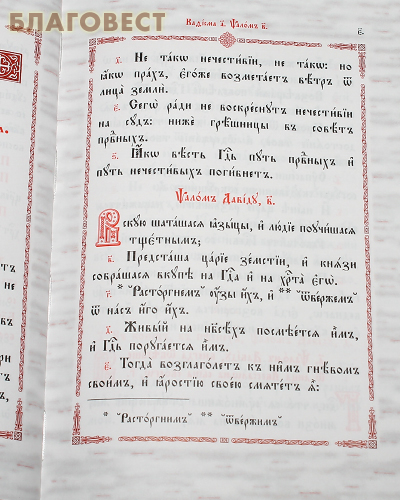 БЛАГОВЕСТ
Каѳі́сма а҃. Ѱало́мъ в҃.
є҃.
д҃. Не та́кѡ нечести́вїи, не та́кѡ: но
ꙗ҆́кѡ пра́хъ, є҆го́же возмета́етъ вѣ́тръ ѿ
лица̀ землѝ.
є҃. Сегѡ̀ ра́ди не воскре́снꙋтъ нечести́вїи
на сꙋ́дъ: нижѐ грѣ̑шницы въ совѣ́тъ
првⷣныхъ.
ѕ҃. Ꙗ҆́кѡ вѣ́сть гдⷭ҇ь пꙋ́ть првⷣныхъ и҆
пꙋ́ть нечести́выхъ поги́бнетъ.
Ѱало́мъ Даві́дꙋ, в҃.
Вскꙋ́ю шата́шасѧ ꙗ҆зы́цы, и҆ лю́дїе поꙋчи́шасѧ
тщє́тнымъ;
в҃. Предста́ша ца́рїе зе́мстїи, и҆ кня҄зи
собра́шасѧ вкꙋ́пѣ на гдⷭ҇а и҆ на хрⷭ҇та̀ є҆гѡ̀.
г҃. * Расто́ргнемъ ᲂу҆́зы и҆́хъ, и҆ ** ѿве́ржемъ
ѿ на́съ и҆́го и҆́хъ.
д҃. Живы́й на нб҃сѣ́хъ посмѣе́тсѧ и҆̀мъ,
и҆ гдⷭ҇ь порꙋга́етсѧ и҆̀мъ.
є҃. Тогда̀ возглаго́летъ къ ни̑мъ гнѣ́вомъ
свои́мъ, и҆ ꙗ҆́ростїю свое́ю смѧте́тъ ѧ҆̀:
* Расто́ргнимъ ** ѿве́ржимъ